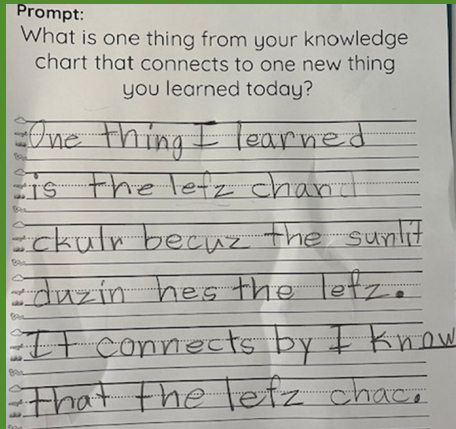 Prompt:
What is one thing from your knowledge
chart that connects to one new thing
you learned today?
One thing I learned
is the lefz chand
ckulr becuz the sunlit
duzin hes the lefz.
It connects by I know
that the lefz chac.